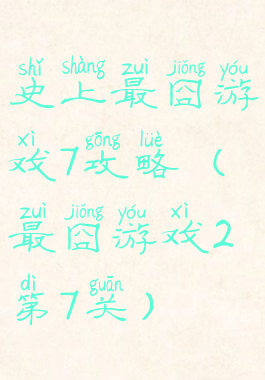 shǐ shàng zuì jiǒng yóu
史上最囧游
xì gōng lüè
戏7攻略（
zuì jiǒng yóu xì
最囧游戏2
dì guān
第7关）